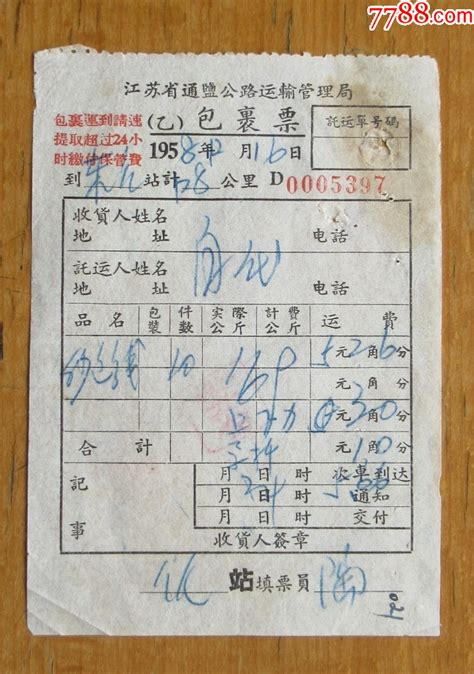 7788.com
江苏省通鹽公路运輸管理局
包裹運到請速
提取超过24小
时繳付保管費
(乙) 包裹票
託运單号碼
1958年2月16日
到 站計 公里 D 0005397
收貨人姓名
地址 电話
託运人姓名
地址 电話
品名 包裝 件数 实際公斤 計費公斤 运費
10 169 5元2角6分
元角分
元角分
合計 元角分
記事
月日时 次車到达
月日时 通知
月日时 交付
收貨人簽章
站填票員 陶